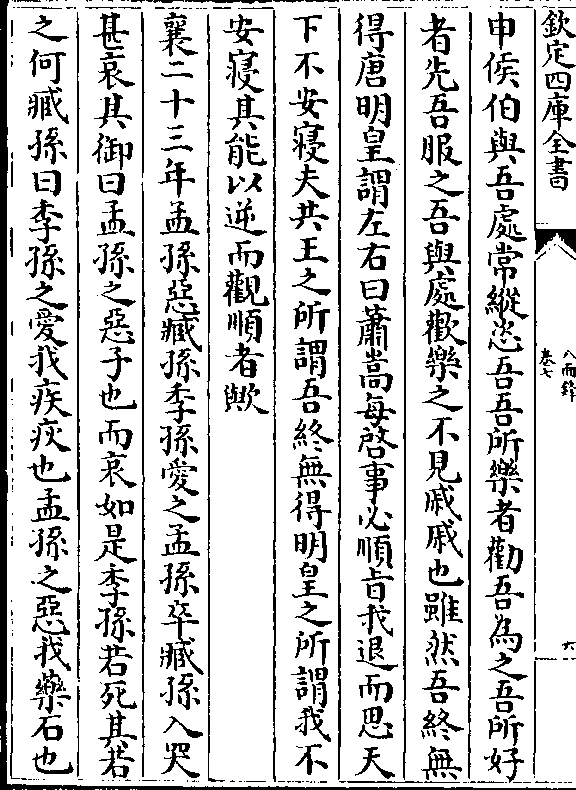 欽定四庫全書
卷七
六
申侯伯與吾處常縱恣吾吾所樂者勸吾為之吾所好
者先吾服之吾與處歡樂之不見戚戚也雖然吾終無
得唐明皇謂左右曰蕭嵩每啓事必順旨我退而思天
下不安寢夫共王之所謂吾終無得明皇之所謂我不
安寢其能以逆而觀順者歟
襄二十三年孟孫惡臧孫季孫愛之孟孫卒臧孫入哭
甚哀其御曰孟孫之惡子也而哀如是季孫若死其若
之何臧孫曰季孫之愛我疾疢也孟孫之惡我藥石也